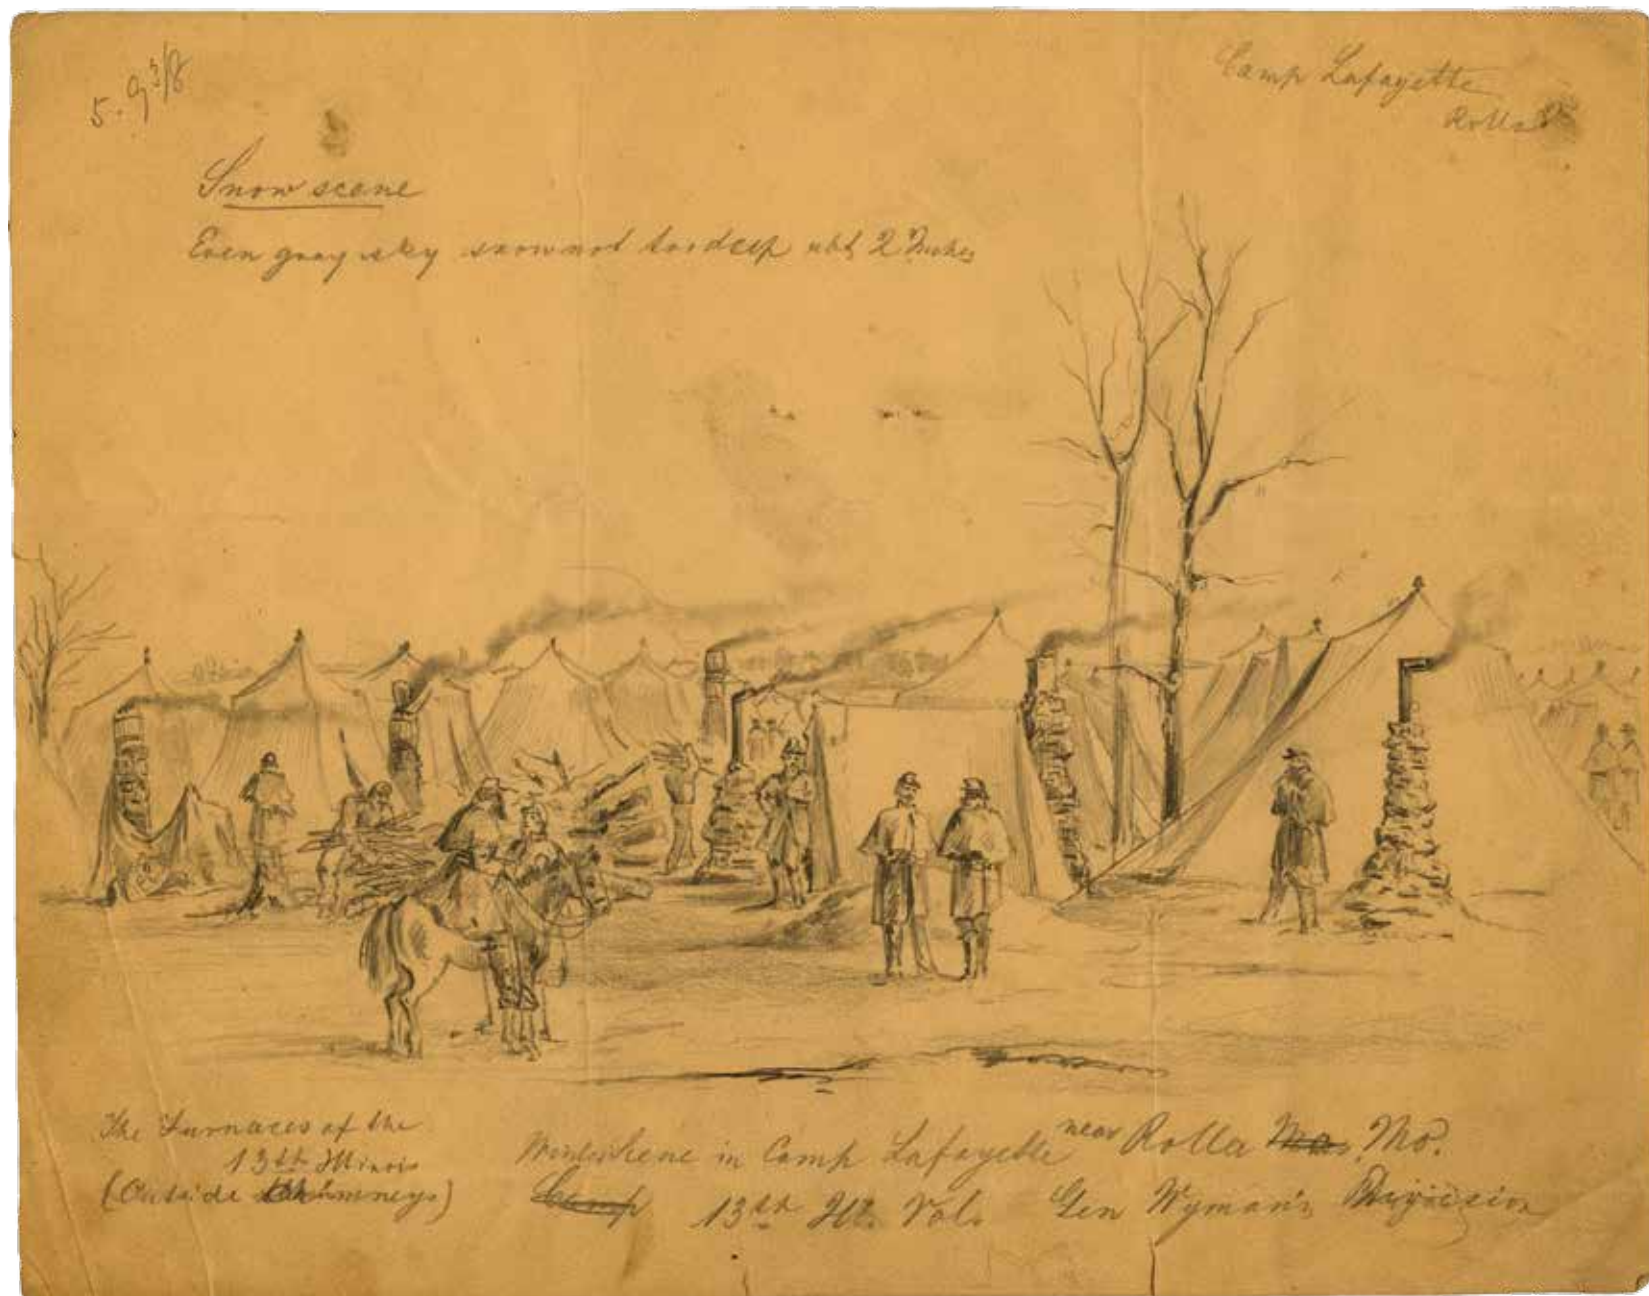 5. 9 3/8
Camp Lafayette
Rolla
Snow scene
Even gray sky snow not too deep abt 2 Inches
The Furnaces of the
13th Illinois
(Outside Chimneys)
Winter Scene in Camp Lafayette near Rolla Mo.
Camp 13th Ill. Vol. Gen Wyman's Division